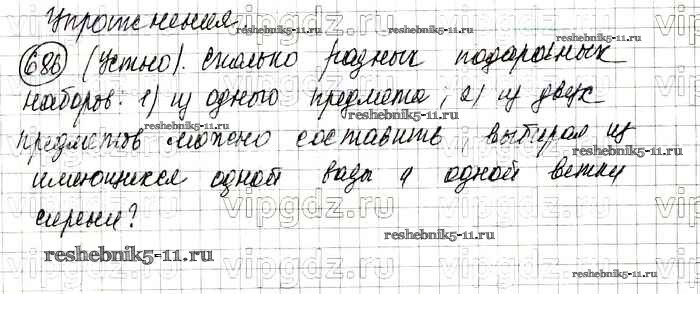 Упражнения.
686 (Устно). Сколько разных подарочных
наборов: 1) из одного предмета; 2) из двух
предметов можно составить, выбирая из
имеющихся одной вазы и одной ветки
сирени?
reshebnik5-11.ru
reshebnik5-11.ru
reshebnik5-11.ru
reshebnik5-11.ru
reshebnik5-11.ru
reshebnik5-11.ru
reshebnik5-11.ru
reshebnik5-11.ru